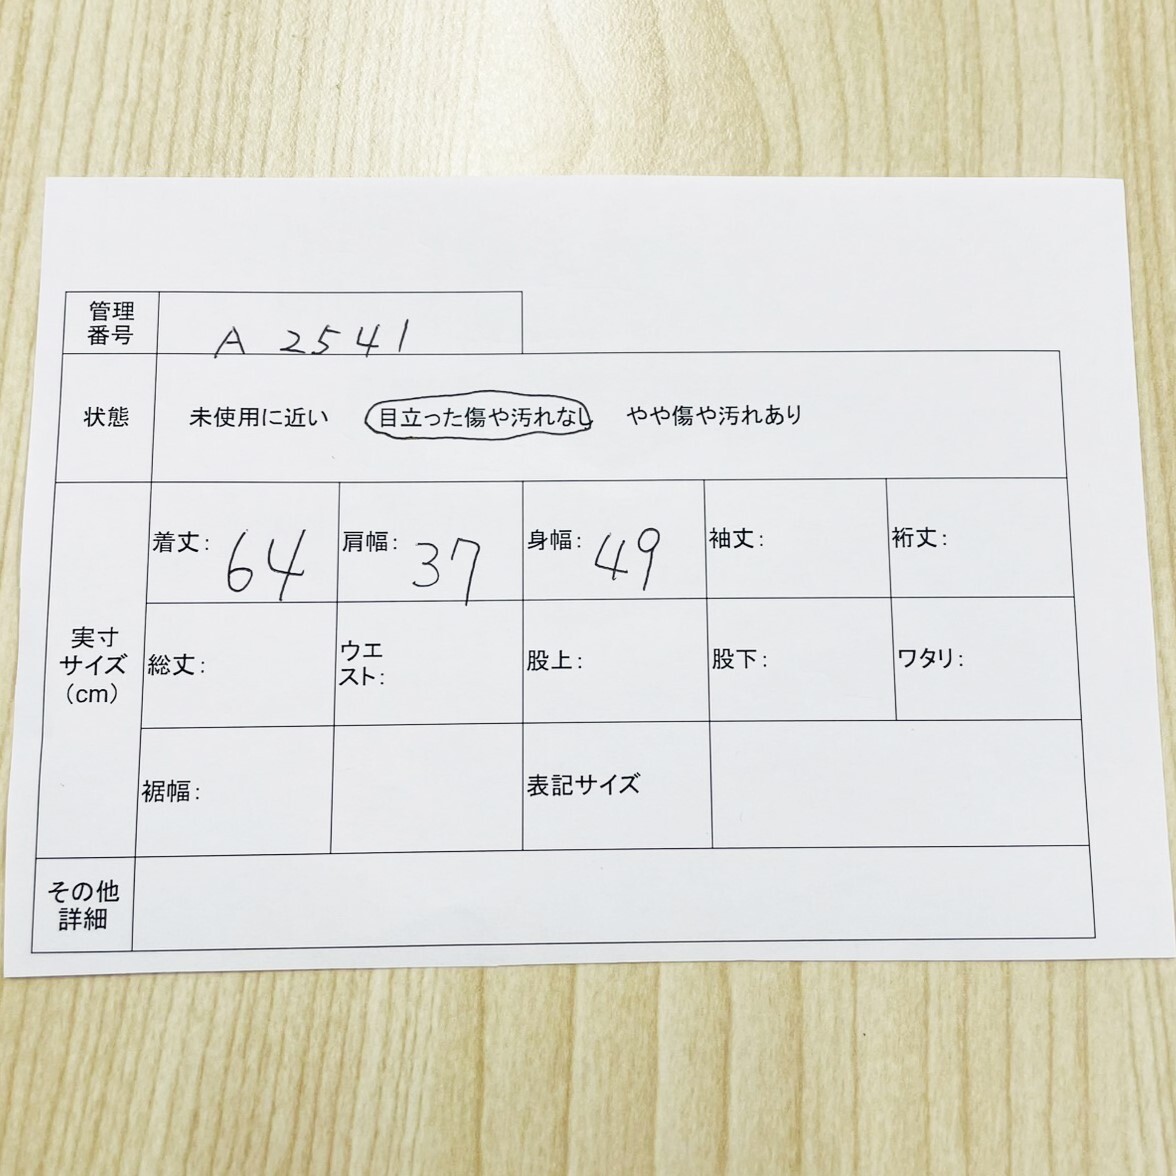 管理
番号
A 2541
状態
未使用に近い 目立った傷や汚れなし やや傷や汚れあり
実寸
サイズ
(cm)
着丈: 64
肩幅: 37
身幅: 49
袖丈:
裄丈:
総丈:
ウエ
スト:
股上:
股下:
ワタリ:
裾幅:
表記サイズ
その他
詳細